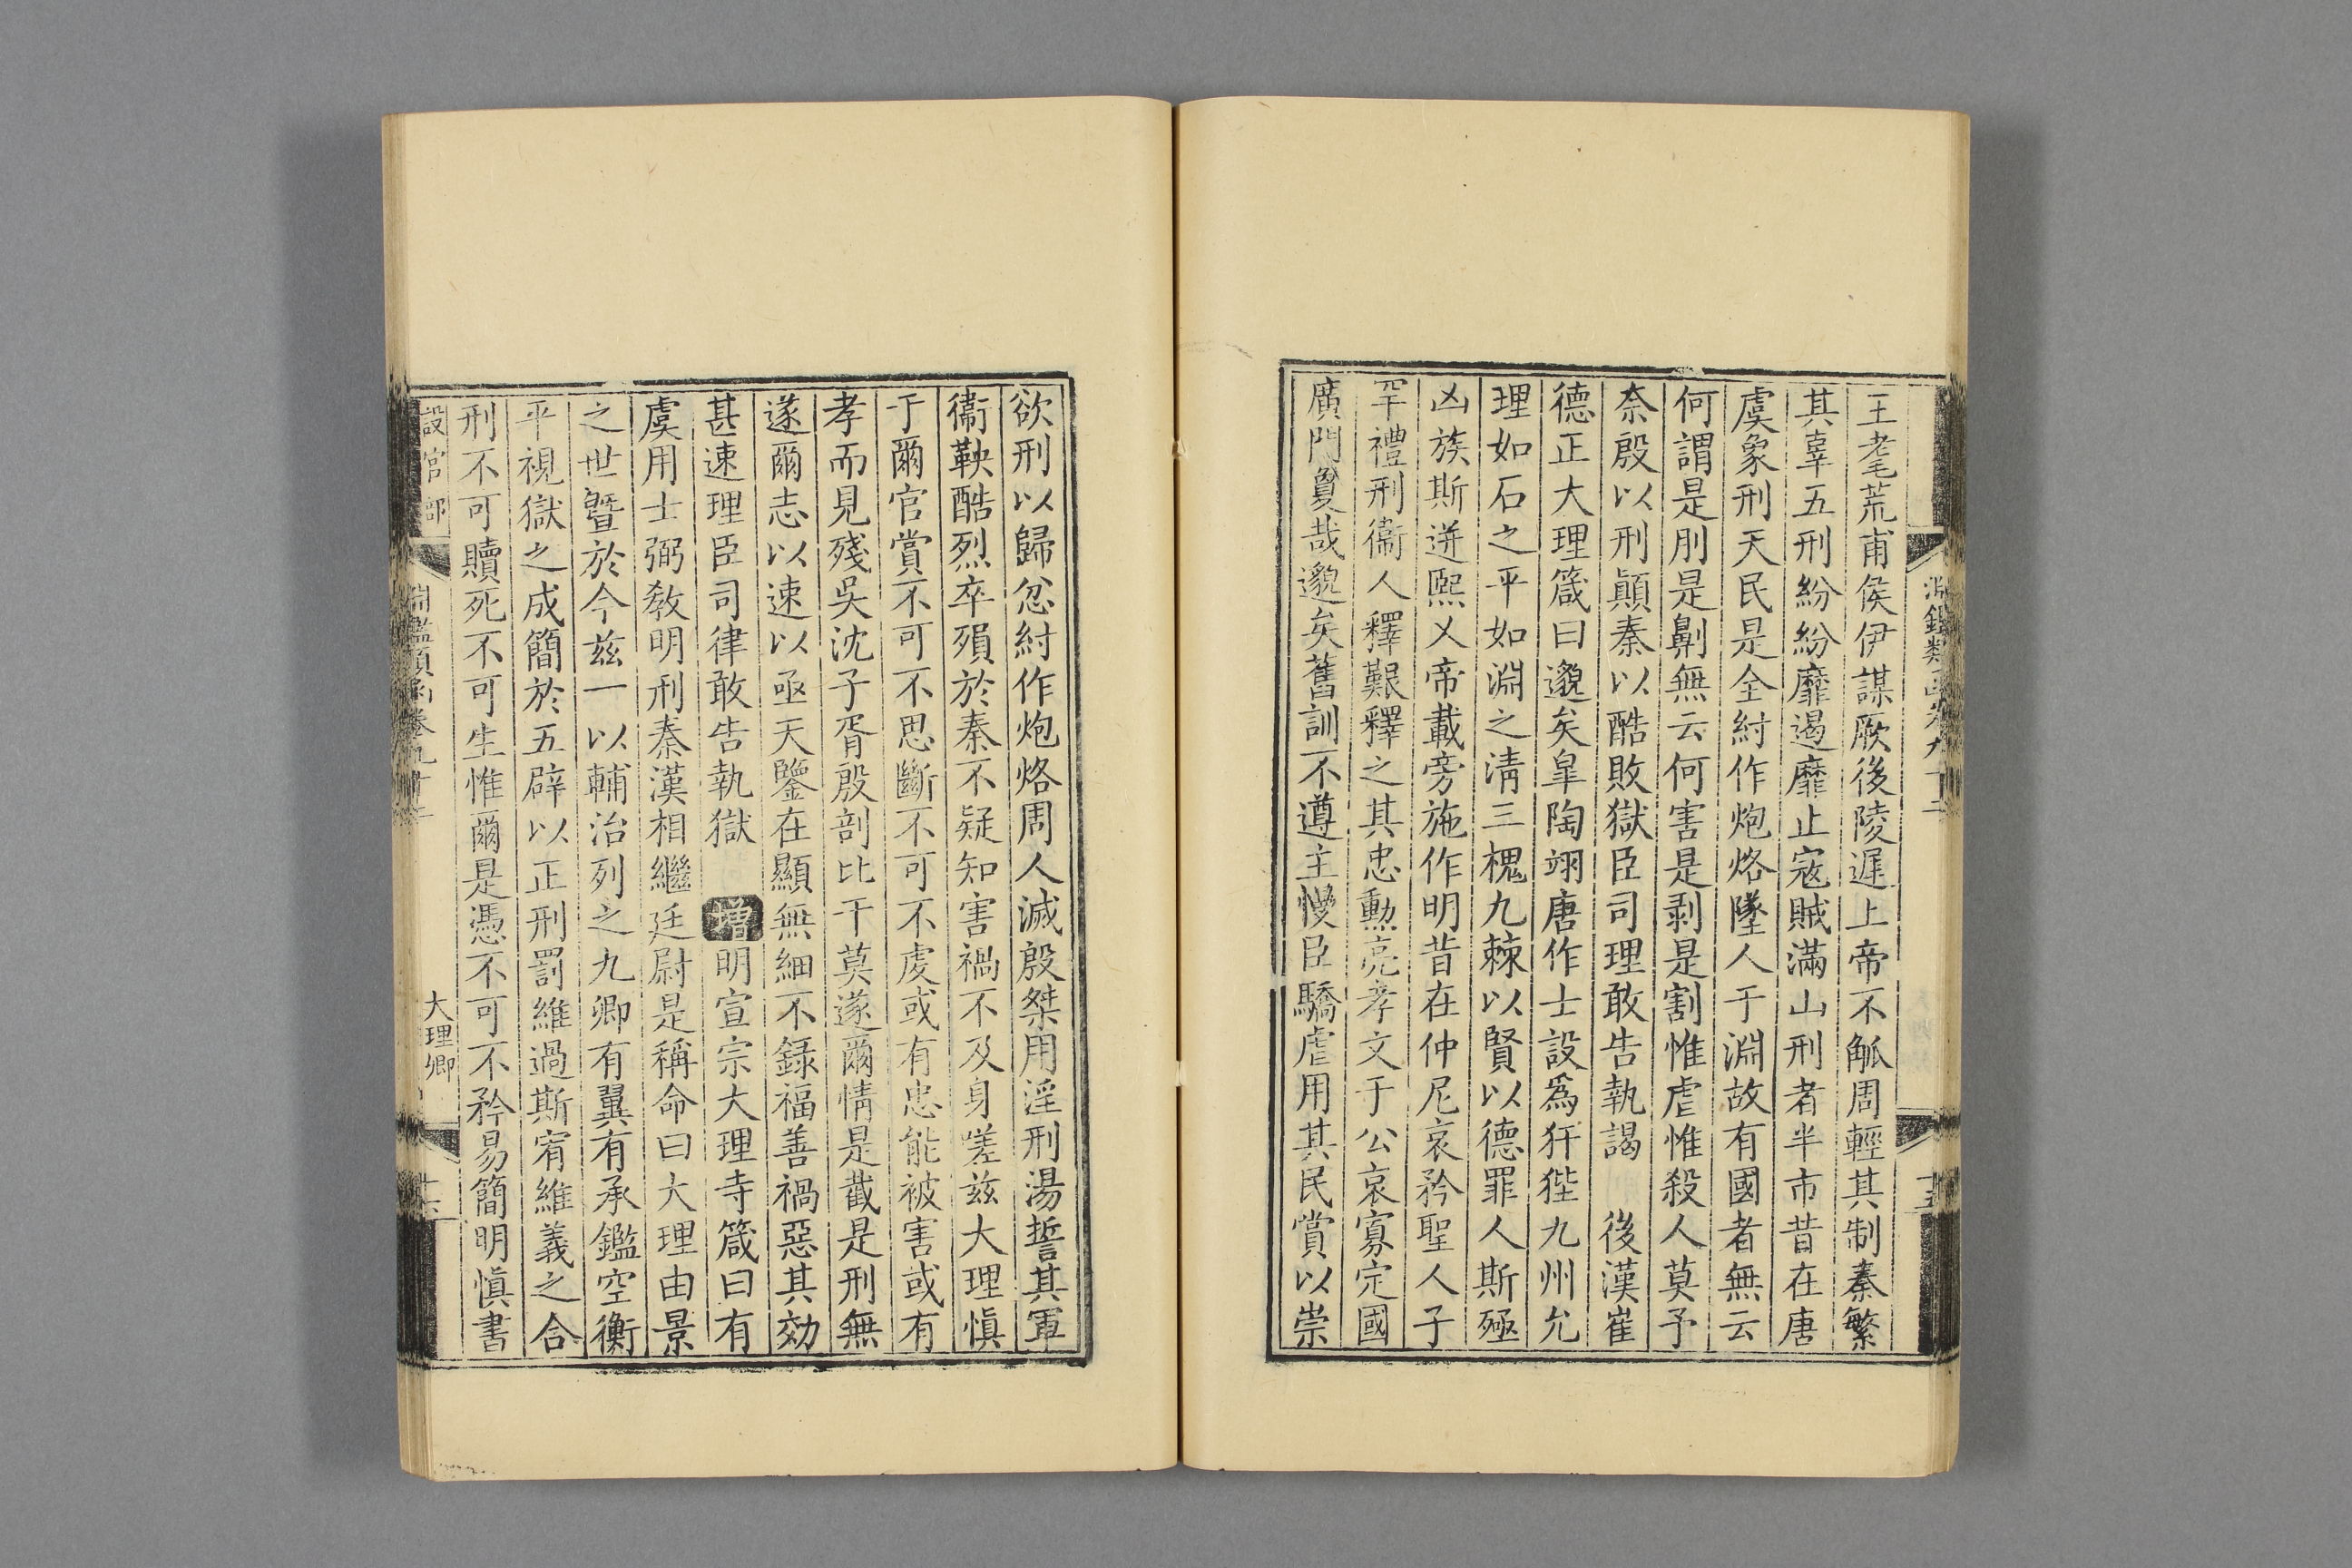 淵鑑類函卷九十二
十五
王耄荒甫侯伊謀厥後陵遲上帝不觚周輕其制秦繁
其辜五刑紛紛靡遏靡止寇賊滿山刑者半市昔在唐
虞象刑天民是全紂作炮烙墜人于淵故有國者無云
何謂是刖是劓無云何害是剥是割惟虐惟殺人莫予
奈殷以刑顛秦以酷敗獄臣司理敢告執謁　後漢崔
德正大理箴曰邈矣皐陶翊唐作士設爲犴狴九州允
理如石之平如淵之淸三槐九棘以賢以德罪人斯殛
凶族斯迸熙乂帝載旁施作明昔在仲尼哀矜聖人子
罕禮刑衞人釋艱釋之其忠勲亮孝文于公哀寡定國
廣門夐哉邈矣舊訓不遵主慢臣驕虐用其民賞以崇
欲刑以歸忿紂作炮烙周人滅殷桀用淫刑湯誓其軍
衞鞅酷烈卒殞於秦不疑知害禍不及身嗟兹大理愼
于爾官賞不可不思斷不可不虔或有忠能被害或有
孝而見殘吳沈子胥殷剖比干莫遂爾情是截是刑無
遂爾志以速以亟天鑒在顯無細不録福善禍惡其効
甚速理臣司律敢告執獄　增明宣宗大理寺箴曰有
虞用士弼敎明刑秦漢相繼廷尉是稱命曰大理由景
之世曁於今兹一以輔治列之九卿有翼有承鑑空衡
平視獄之成簡於五辟以正刑罰維過斯宥維義之合
刑不可贖死不可生惟爾是憑不可不矜易簡明愼書
設官部
淵鑑類函卷九十二
大理卿
十六